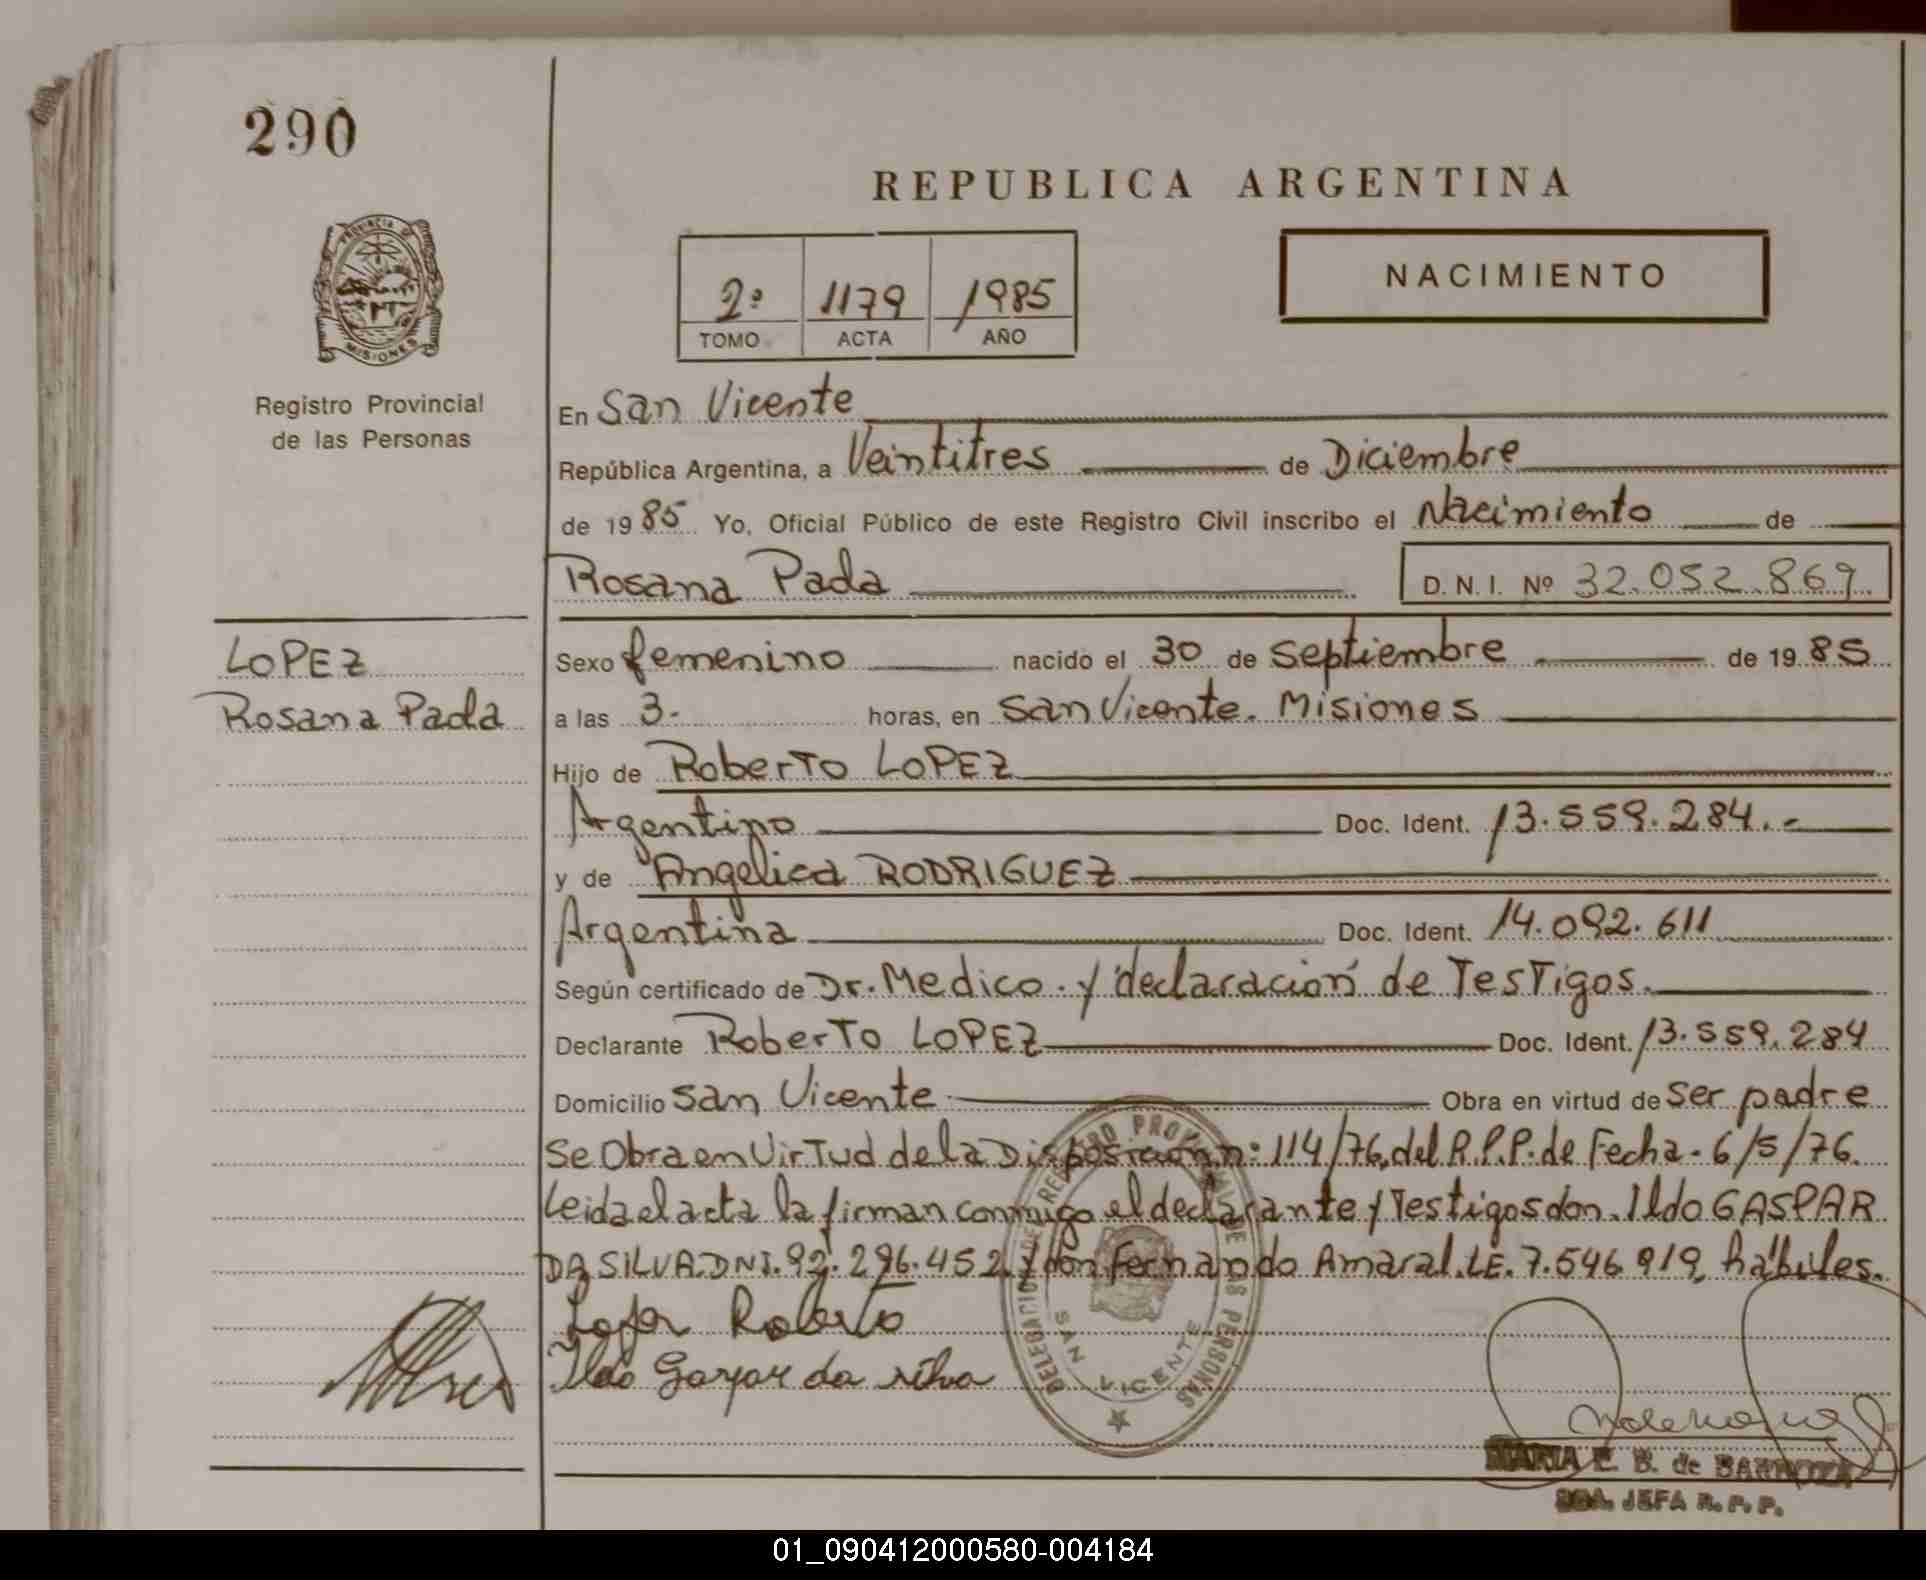 290
REPUBLICA ARGENTINA
PROVINCIA DE
MISIONES
Registro Provincial
de las Personas
2º 1179 1985
TOMO ACTA AÑO
NACIMIENTO
En San Vicente
República Argentina, a Veintitres de Diciembre
de 1985 Yo, Oficial Público de este Registro Civil inscribo el Nacimiento de
Rosana Pada D. N. I. Nº 32.052.869
LOPEZ
Rosana Pada
Sexo femenino nacido el 30 de septiembre de 1985
a las 3. horas, en San Vicente. Misiones
Hijo de Roberto LOPEZ
Argentino Doc. Ident. 13.559.284.-
y de Angelica RODRIGUEZ
Argentina Doc. Ident. 14.092.611
Según certificado de Dr. Medico. y declaración de Testigos.
Declarante Roberto LOPEZ Doc. Ident. 13.559.284
Domicilio San Vicente Obra en virtud de ser padre
Se Obra en Virtud de la Disposicion nº 114/76, del R.P.P. de Fecha. 6/5/76.
Leida el acta la firman conmigo el declarante y Testigos don. Ildo GASPAR
DA SILVA. DNI. 92.296.452 y don Fernando Amaral. LE. 7.546.919, hábiles.
Lopez Roberto
Ildo Gaspar da silva
DELEGACION DE REGISTRO PROVINCIAL DE LAS PERSONAS
SAN VICENTE
MARIA E. B. de BARBOZA
SGA. JEFA R. P. P.
01_090412000580-004184